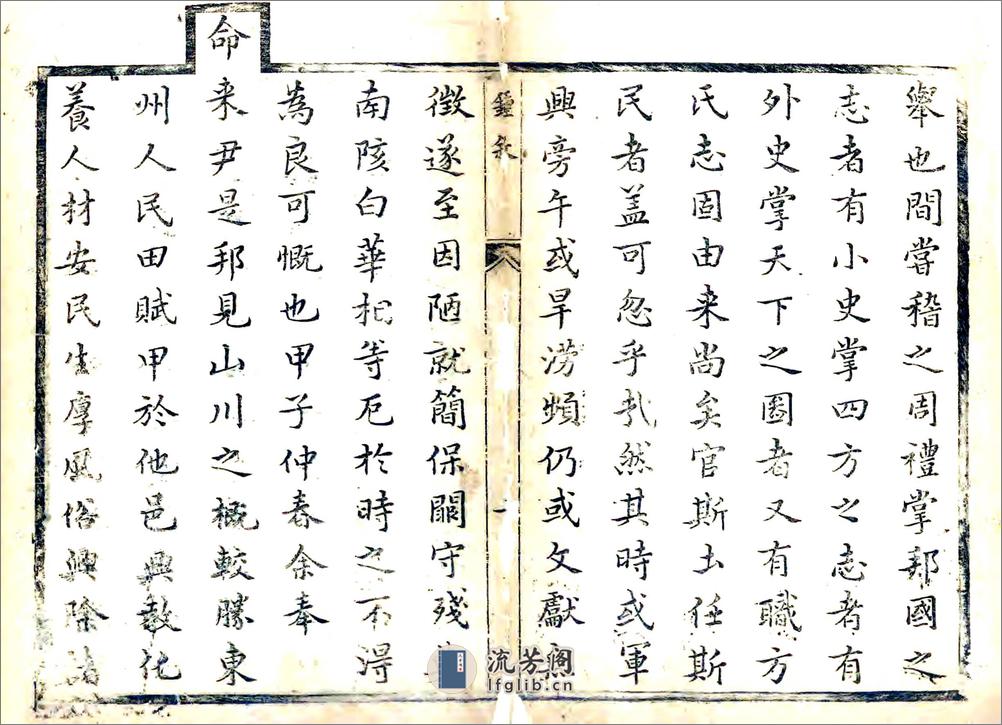 舉也間嘗稽之周禮掌邦國之
志者有小史掌四方之志者有
外史掌天下之圖者又有職方
氏志固由来尚矣官斯土任斯
民者盖可忽乎㢤然其時或軍
興旁午或旱澇頻仍或文獻
鍾叙
一
徵遂至因陋就簡保闕守殘
南陔白華柤等厄於時之不淂
為良可慨也甲子仲春余奉
命
来尹是邦見山川之概較勝東
州人民田賦甲於他邑興教化
養人材安民生厚風俗興除諸
流芳阁
lfglib.cn